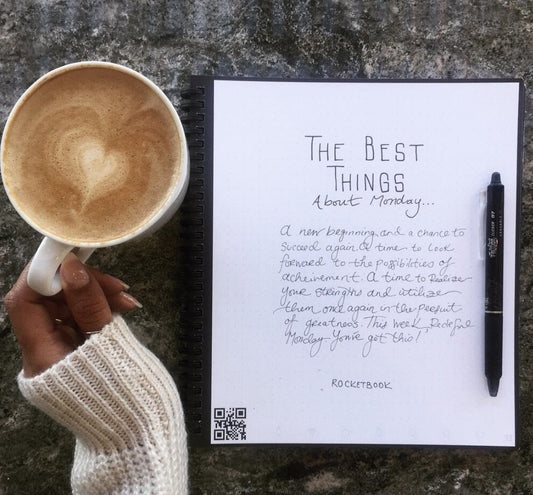 THE BEST
THINGS
About Monday...
A new beginning and a chance to
succeed again. A time to look
forward to the possibilities of
acheivement. A time to Realize
your strengths and utilize
them once again in the persuit
of greatness. This week Redefine
Monday. You've got this!
ROCKETBOOK